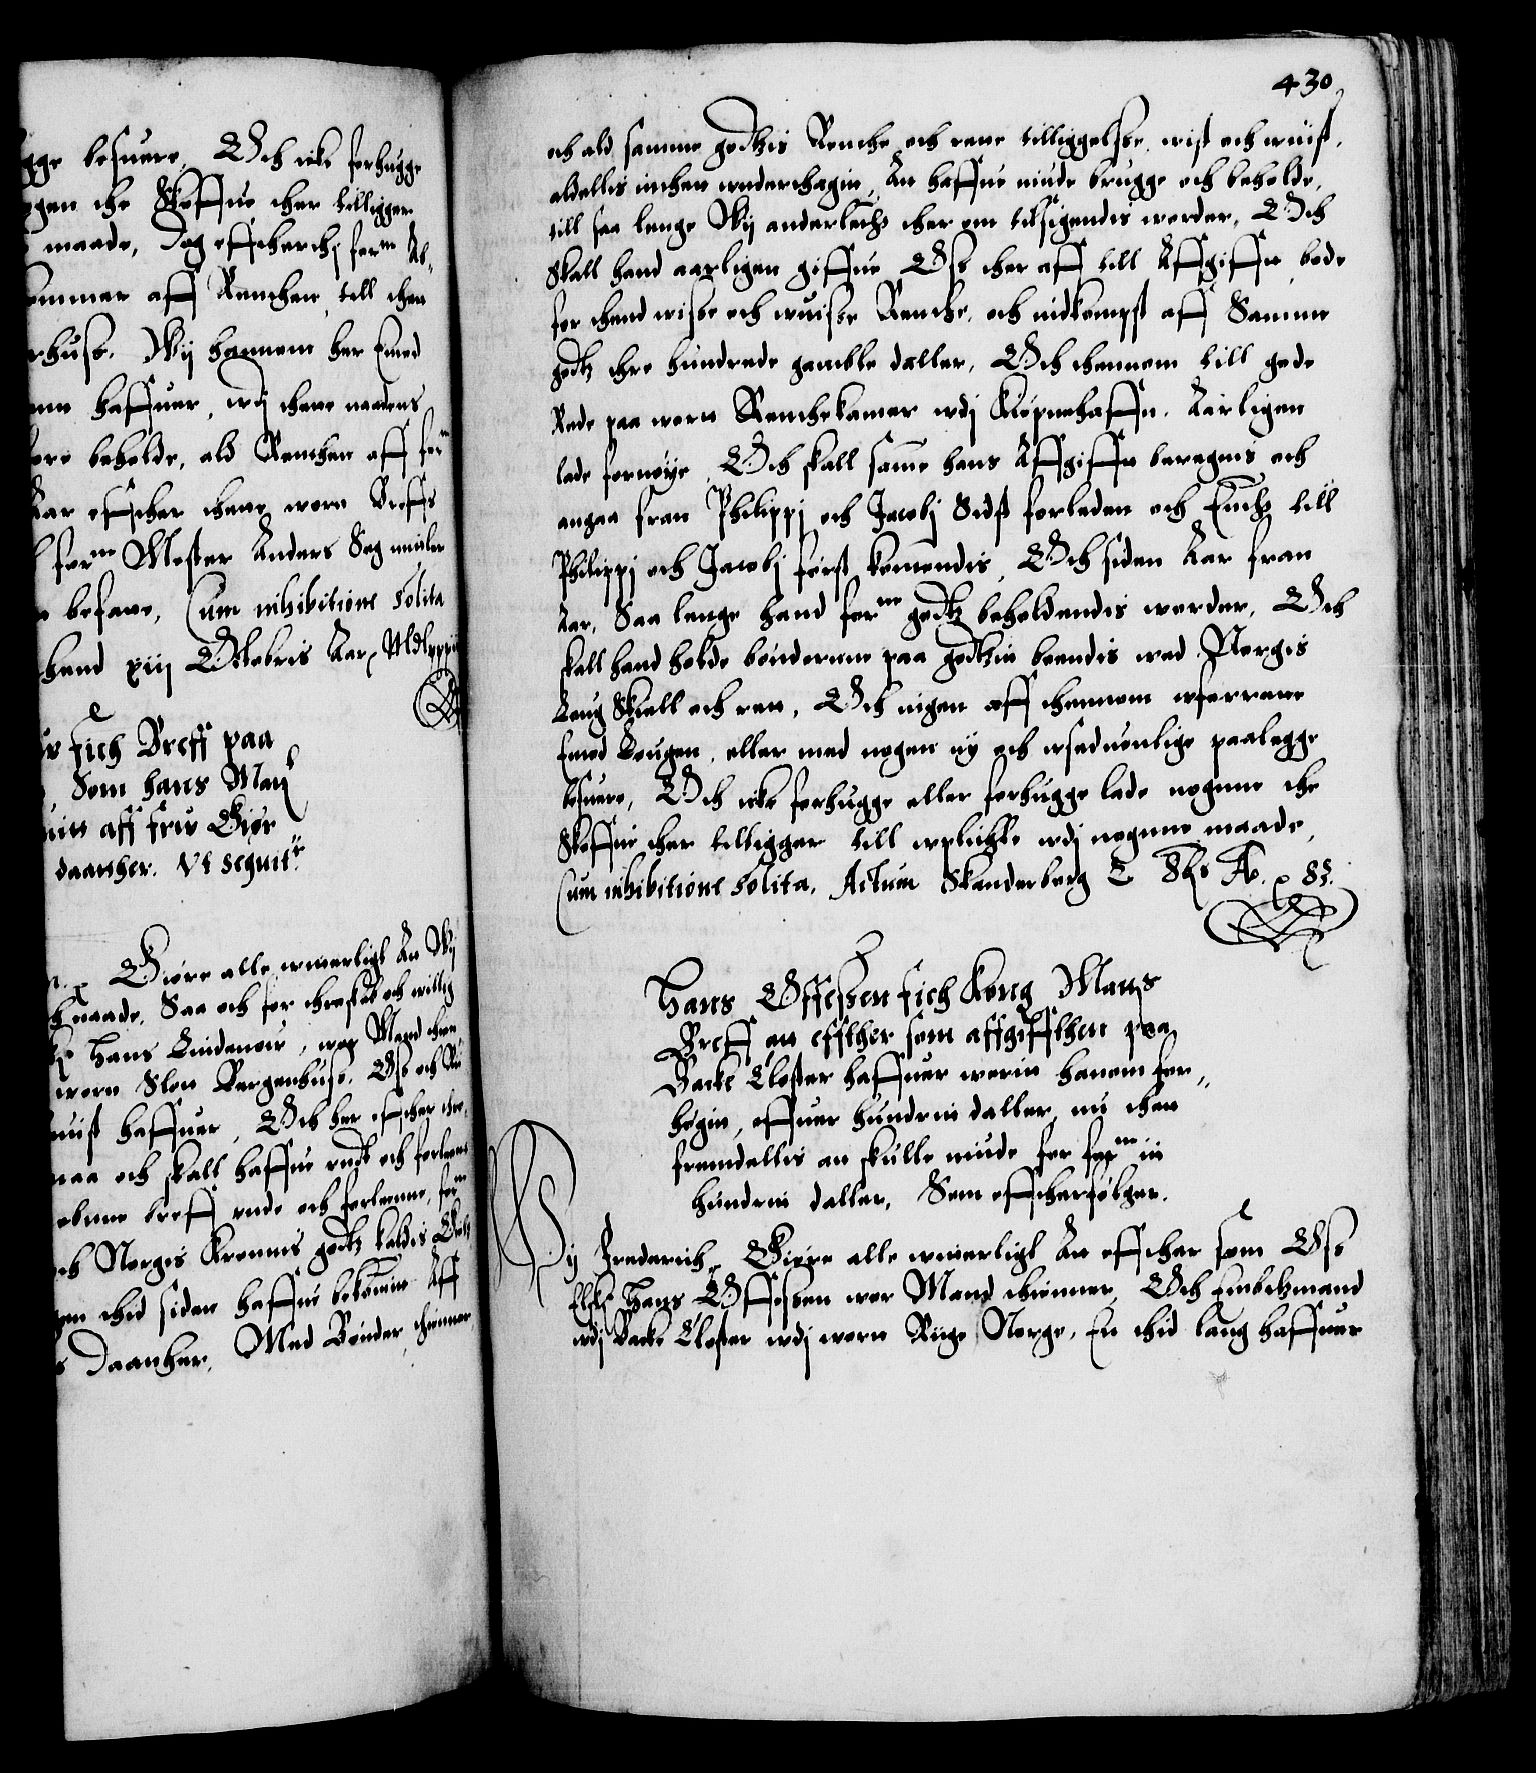 gge besuere, Och icke forhugge
ogen the Skoffue ther tilligger
maade, Dog effterthj forne Ab-
ommer aff Renthen till then
rhuss. Wij hannom her emod
nne haffuer, wdj thenne naadens
fore beholde, ald Renthen aff forne
Aar effther thenne worn Breffs
forne Mester Anders Seg middler
befane, Cum inhibitione solita
thend xiij Octobris Aar MDLxxxij
er fich Breff paa
Som hans Matt
uin aff fru Giør
daatther. Vt sequitr
Giøre alle witterligt At Wij
naade, Saa och for throskab och willig
Hans Lindenow, wor Mand thien
worn Slott Bergenhuss, Oss och Ri
uist haffuer, Och her effther thro-
maa och skall haffue vndt och forlent
obne breff vnde och forlenne, forne
och Norgis Kronnis godtz kaldis
en thid siden haffue bekomme Aff
s Daatther, Med Bønder, thienner
430
och ald samme godtzis Renthe och rette tilliggelsse, wist och wuist,
aldellis inthen vnderthagin, At haffue niude brugge och beholde,
till saa lenge Wij anderledes ther om tilsigendis worder, Och
Skall hand aarligen giffue Oss ther aff till Affgifft, bode
for thend wisse och wuisse Renthe, och indkompst aff Samme
godtz thre hundrede gamble daller, Och thennom till gode
Rede paa worn Renthekamer wdj Kiøpnehaffn, Aarligen
lade fornøye, Och skall samme hans Affgifft beregnis och
angaa fran Philippj och Jacobj Sidst forleden och Endes till
Philippj och Jacobj først komendis, Och siden Aar fran
Aar, Saa lenge hand forne godtz beholdendis worder, Och
skall hand holde bønderne paa godtzit boendis wed Norgis
Loug Skiell och ret, Och ingen aff thennom wforrette
emod Lougen, eller med nogen ny och wseduonlige paalegge
besuere, Och icke forhugge eller forhugge lade nogenne the
Skoffue ther tilligger till wplichte wdj nogenne maade,
Cum inhibitione solita, Actum Skanderborg 83.
Hans Offessen fich Kong Matts
Breff at effther som affgifften paa
Backe Closter haffuer werit hanom for-
høgit, offuer hundrit daller, nu then
fremdellis at skulle niude for forne ij
hundrit daller, Som effterfølger.
Wij Frederich Giøre alle witterligt At effther som Oss
Elskel Hans Offessen wor Mand thienner, Och Embitzmand
wdj Backe Closter wdj wort Rige Norge, En thid lang haffuer